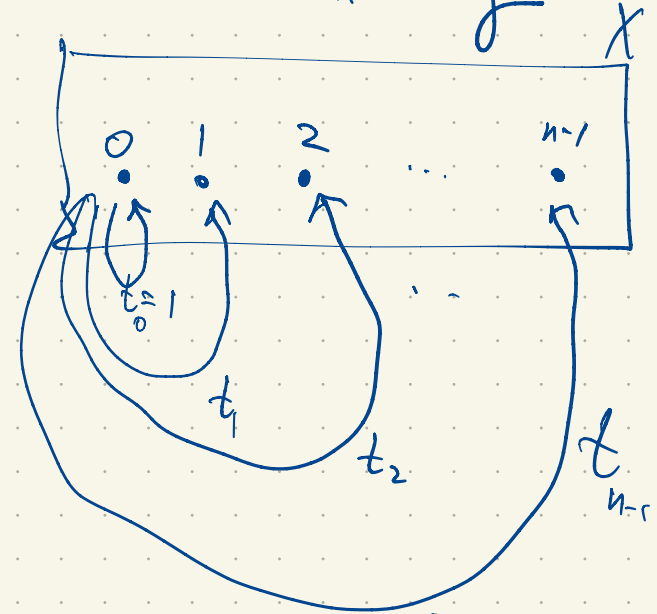 X
0 1 2 ... n-1
t₀=1
t₁
t₂
tₙ₋₁